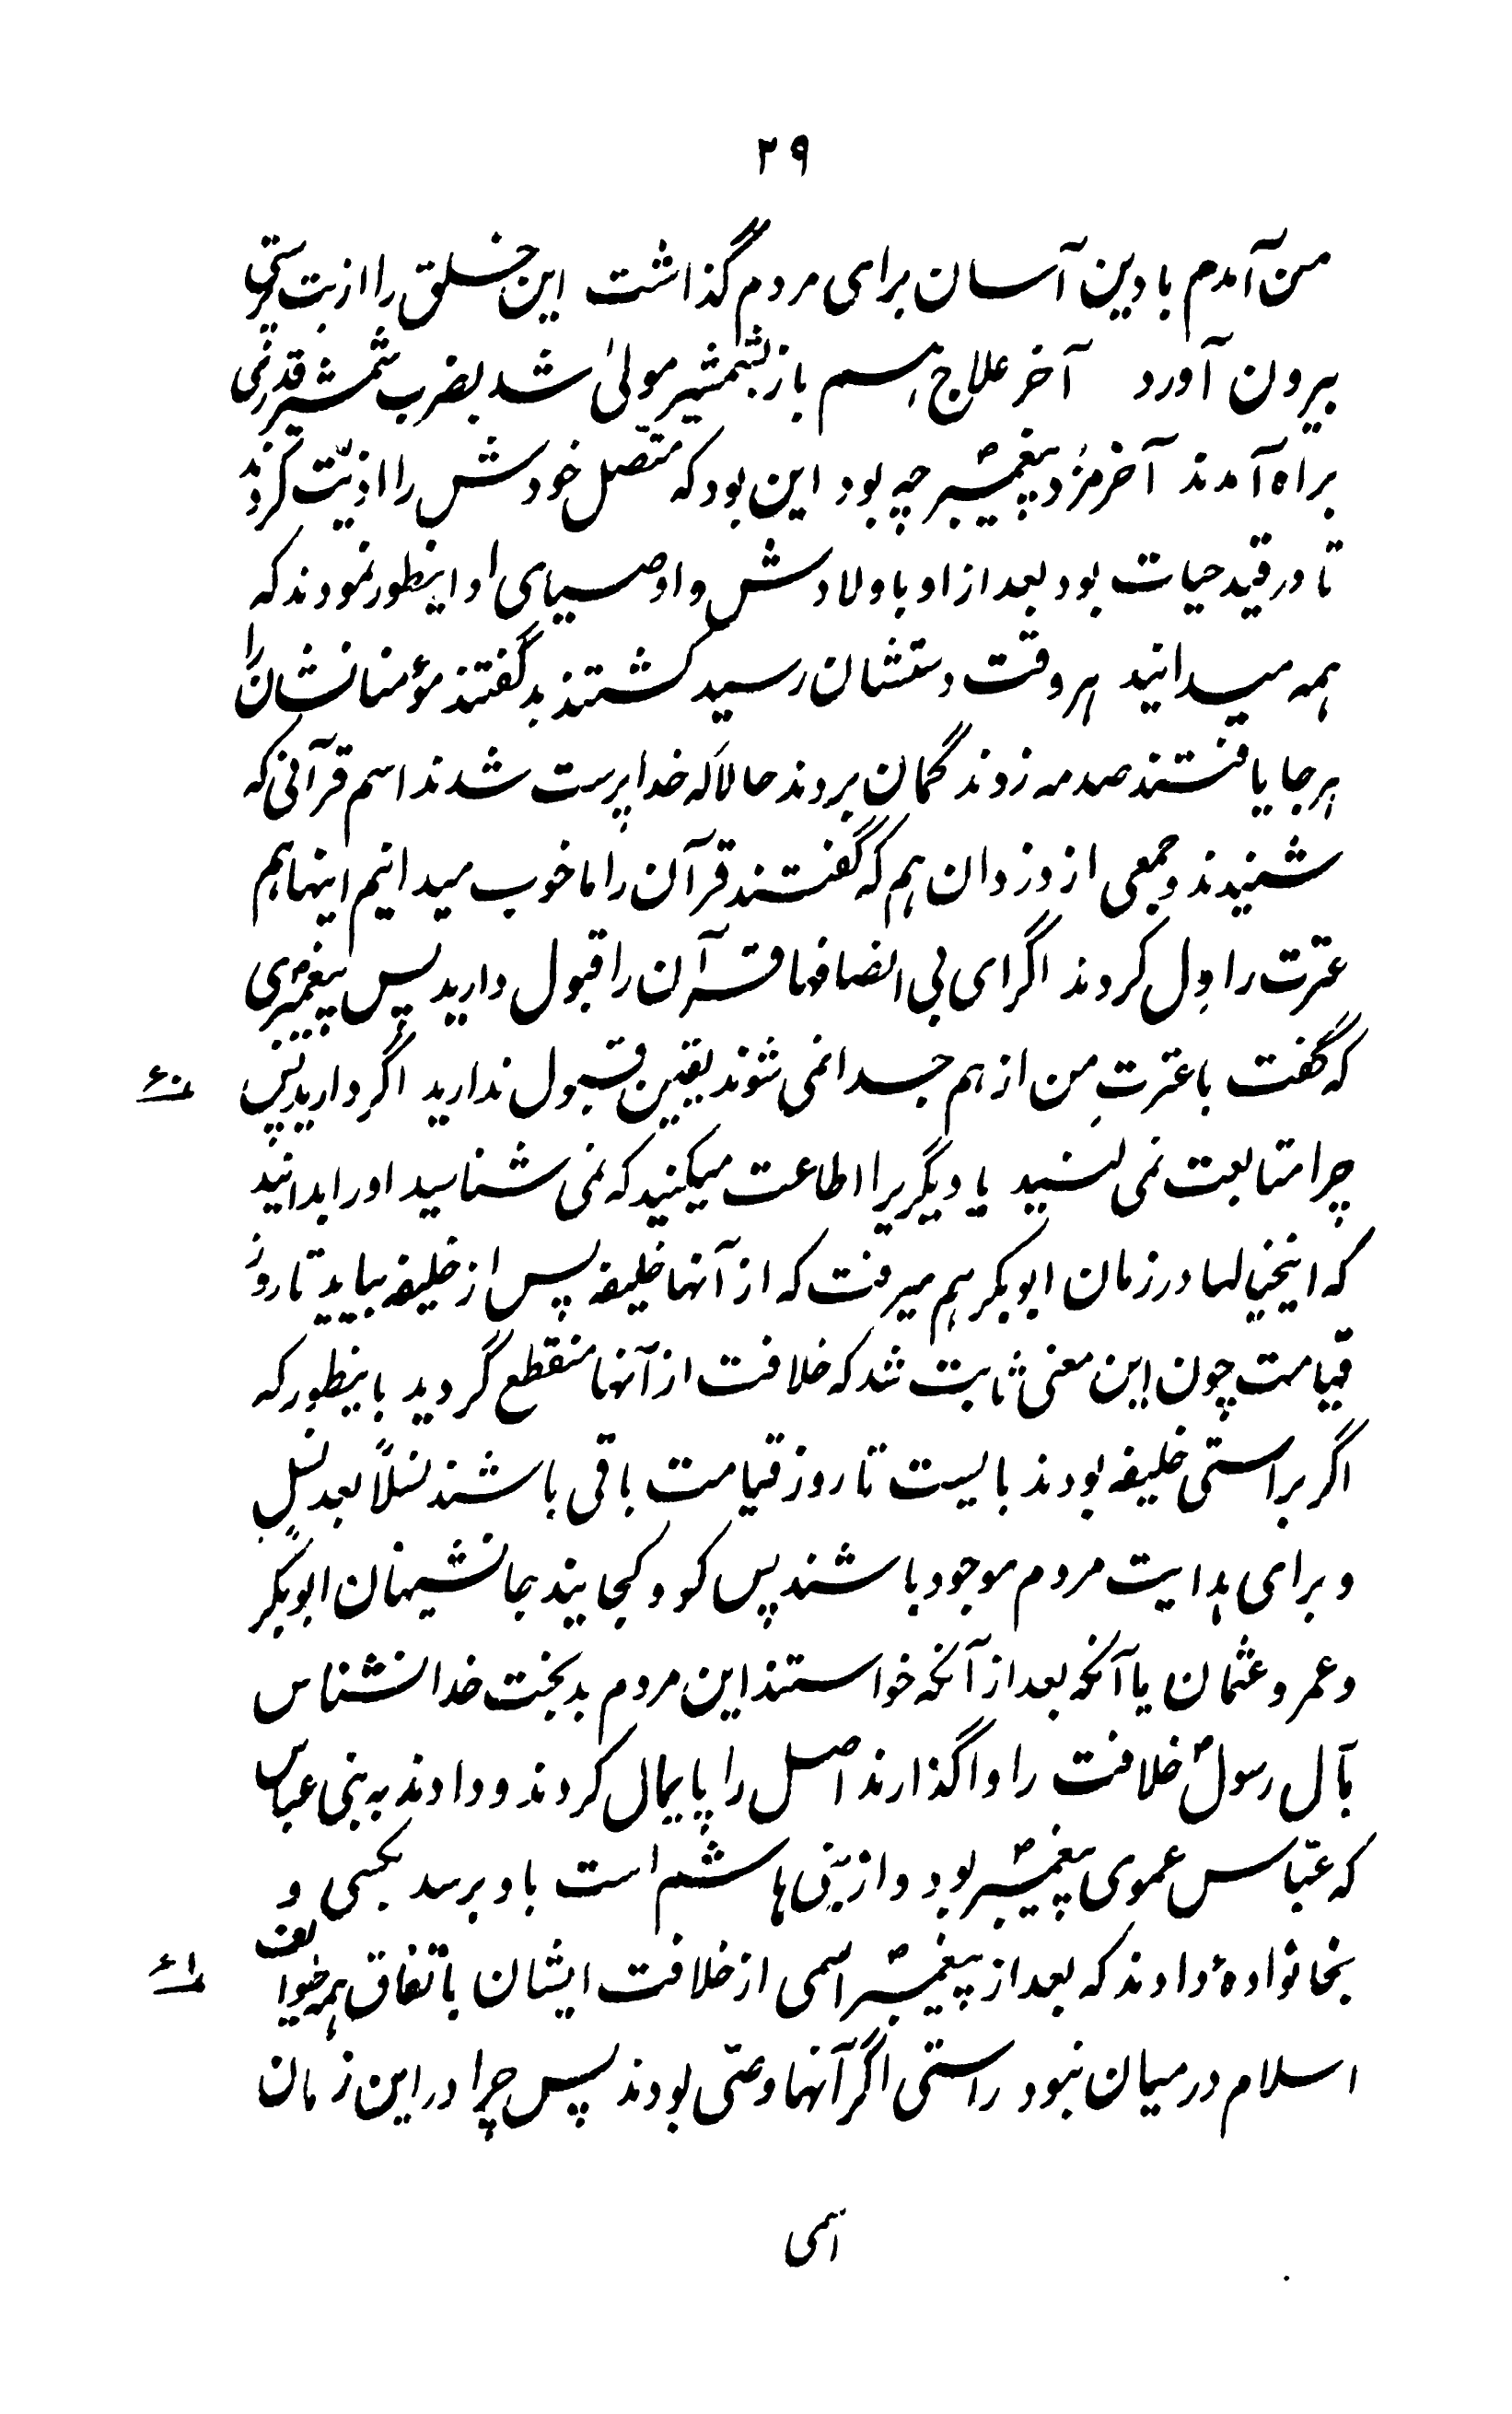 ۲۹
من آمدم با دین آسان برای مردم گذاشت این خلق را از بت پرستی
بیرون آورد آخر علاج هم باز بشمشیر مولیٰ شد بضرب شمشیر قدری
براه آمدند آخر مُزد پیغمبرؐ چه بود این بود که متصل خودش را اذیّت کردند
تا در قید حیات بود بعد از او باولادش و اوصیای او اینطور نمودند که
همه میدانید هر وقت دستشان رسید کشتند بد گفتند مؤمنانشان را
هر جا یافتند صدمه زدند گمان بردند حالا که خدا پرست شدند اسم قرآنی که
شنیدند و جمعی از دزدان هم که گفتند قرآن را ما خوب میدانیم اینها هم
عترت را وِل کردند اگر ای بی انصافها قرآن را قبول دارید پس پیغمبری
که گفت با عترتِ من از هم جدا نمی شوند یقین قبول ندارید اگر دارید پس
۶۰
چرا متابعت نمی کنید یا دیگریرا اطاعت میکنید که نمی شناسید او را بدانید
که اینخیالها در زمان ابوبکر هم میرفت که از آنها خلیفه پس از خلیفه بیاید تا روز
قیامت چون این معنی ثابت شد که خلافت از آنها منقطع گردید باینطور که
اگر براستی خلیفه بودند بایست تا روز قیامت باقی باشند نسلاً بعد نسلٍ
و برای هدایت مردم موجود باشند پس کو و کجایند جانشینان ابوبکر
و عمر و عثمان یا آنکه بعد از آنکه خواستند این مردم بدبخت خدانشناس
بآل رسولؐ خلافت را واگذارند اصل را پایمال کردند و دادند به بنی عباس
که عبّاس عموی پیغمبرؐ بود و از بنی هاشم است باو برسد بکسی و
بخانوادهٔ دادند که بعد از پیغمبرؐ اسمی از خلافت ایشان باتفاق همه طوایف
۶۱
اسلام در میان نبود راستی اگر آنها وصّی بودند پس چرا در این زمان
اسمی